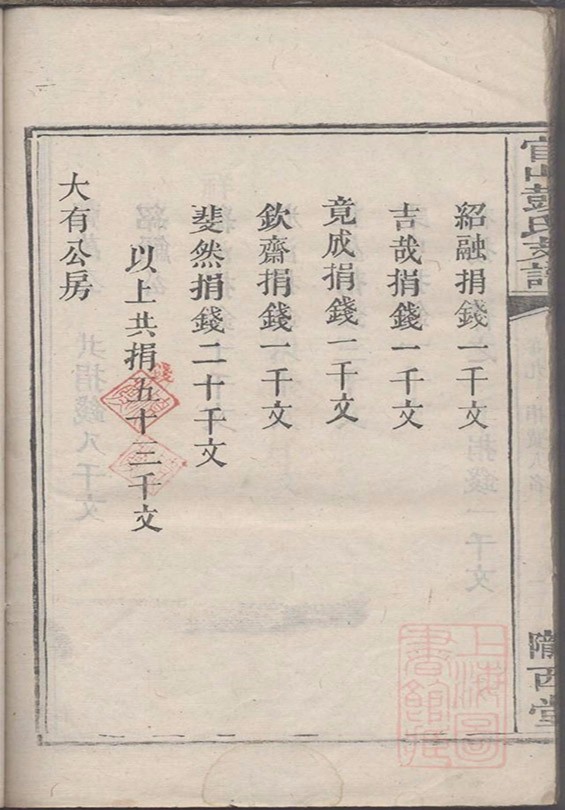 官山彭氏支譜
隴西堂
紹融捐錢一千文
吉哉捐錢一千文
竟成捐錢一千文
欽齋捐錢一千文
斐然捐錢二十千文
以上共捐錢五十三千文
大有公房
上海圖
書館藏